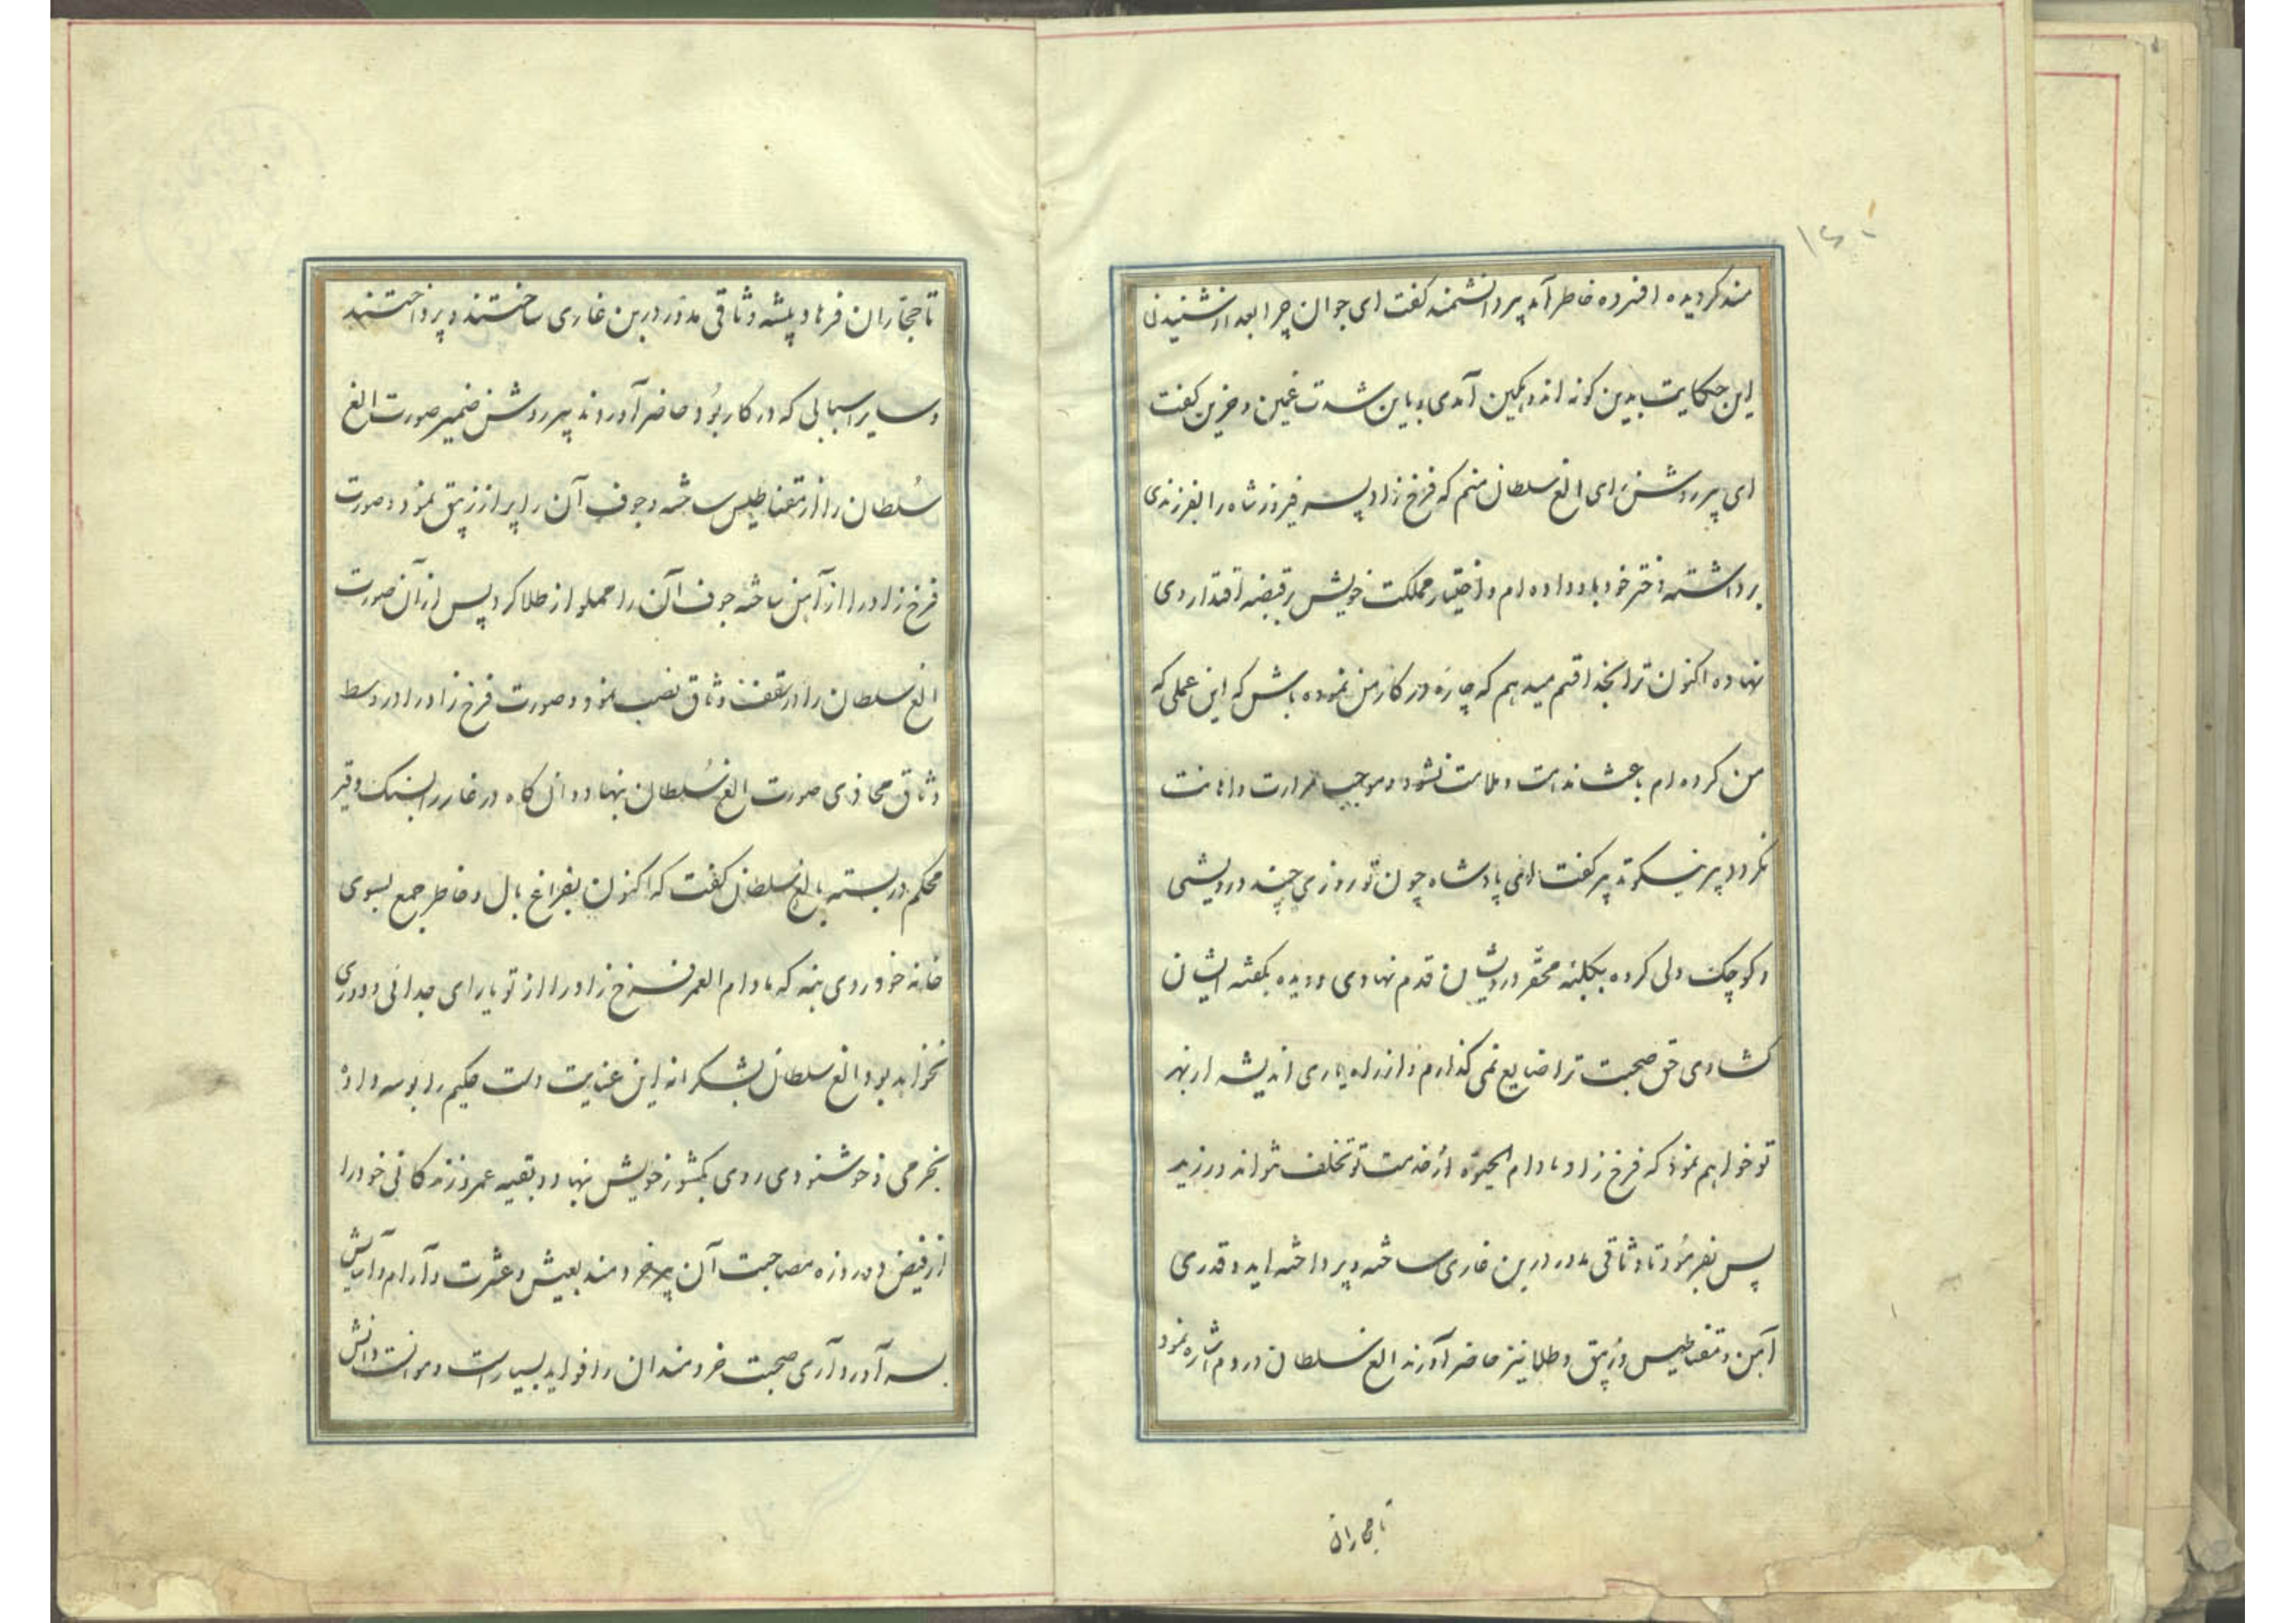 مند کردیده افسرده خاطر آمد پیر دانشمند کفت ای جوان چرا بعد از شنیدن
این حکایت بدین کونه اندوهکین آمدی و باین شدت غمین و حزین کفت
ای پیر روشن رای الغ سلطان منم که فرخ زاد پسر فیروز شاه را بفرزندی
برداشته دختر خود باو داده ام و اختیار مملکت خویش بر قبضه اقتدار وی
نهاده اکنون ترا بخدا قسم میدهم که چاره در کار من نموده باش که این عملی که
من کرده ام باعث ندامت و ملامت نشود و موجب مرارت و اهانت
نکردد پیر نیکو تدبیر کفت ای پادشاه چون تو روزی چند درویشی
و کوچک دلی کرده بکلبه محقر درویشان قدم نهادی و دیده بکفته ایشان
کشادی حق صحبت ترا ضایع نمی کذارم و از راه یاری اندیشه از بهر
تو خواهم نمود که فرخ زاد مادام الحیوة از خدمت تو تخلف نتواند ورزید
پس بفرمود تا وثاقی مدور در بن غاری ساخته و پرداخته اید و قدری
آهن و مقناطیس و زیبق و طلا نیز حاضر آورند الغ سلطان در دم اشاره نمود
تا حجاران
تا حجاران فرهاد پیشه وثاقی مدور در بن غاری ساختند و پرداختند
و سایر اسبابی که در کار بود حاضر آوردند پیر روشن ضمیر صورت الغ
سلطان را از مقناطیس ساخته و جوف آن را پر از زیبق نمود و صورت
فرخ زاد را از آهن ساخته جوف آن را مملو از طلا کرد پس از آن صورت
الغ سلطان را در سقف وثاق نصب نمود و صورت فرخ زاد را در وسط
وثاق محاذی صورت الغ سلطان بنهاد و آن کاه در غار را بسنک و قیر
محکم در بسته بالغ سلطان کفت که اکنون بفراغ بال و خاطر جمع بسوی
خانه خود روی بنه که مادام العمر فرخ زاد را از تو یارای جدائی و دوری
نخواهد بود الغ سلطان بشکرانه این عنایت دست حکیم را بوسه داد و
بخرمی و خوشنودی روی بکشور خویش نهاد و بقیه عمر و زندکانی خود را
از فیض ده روزه مصاحبت آن پیر خردمند بعیش و عشرت و آرام و آسایش
بسر آورد آری صحبت خردمندان را فواید بسیار است و موانست دانش